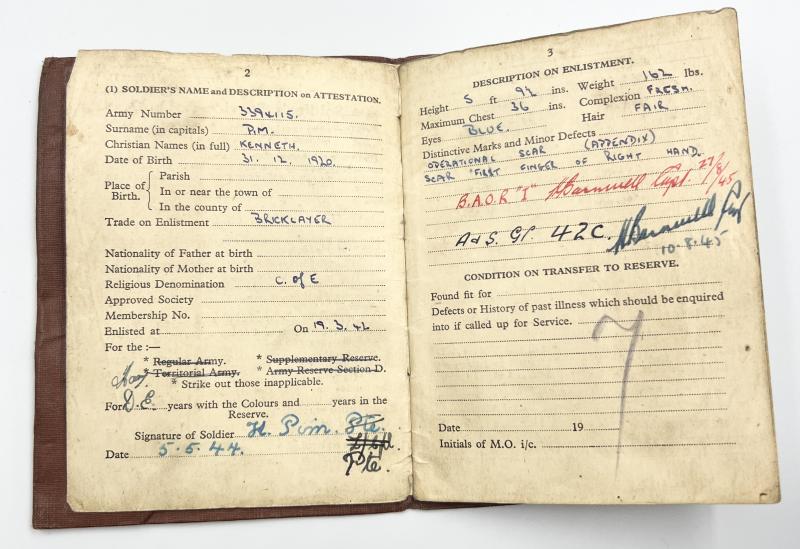 2
(1) SOLDIER'S NAME and DESCRIPTION on ATTESTATION.
Army Number 3394115.
Surname (in capitals) PIM.
Christian Names (in full) KENNETH.
Date of Birth 31. 12. 1920.
Place of Birth. Parish
In or near the town of
In the county of
Trade on Enlistment BRICKLAYER
Nationality of Father at birth
Nationality of Mother at birth
Religious Denomination C. of E
Approved Society
Membership No.
Enlisted at On 19. 3. 42
For the :—
* Regular Army. * Supplementary Reserve.
* Territorial Army. * Army Reserve Section D.
* Strike out those inapplicable.
For D.E. years with the Colours and years in the
Reserve.
Signature of Soldier K. Pim. Pte.
Date 5.5.44.
Pte.
3
DESCRIPTION ON ENLISTMENT.
Height 5 ft 9½ ins. Weight 162 lbs.
Maximum Chest 36 ins. Complexion FRESH.
Eyes BLUE. Hair FAIR
Distinctive Marks and Minor Defects
OPERATIONAL SCAR (APPENDIX)
SCAR "FIRST FINGER OF RIGHT HAND.
B.A.O.R "I" Barnwell Capt. 27/8/45
A & S. GP. 42C. Barnwell Capt
10.8.45
CONDITION ON TRANSFER TO RESERVE.
Found fit for
Defects or History of past illness which should be enquired
into if called up for Service.
7
Date 19
Initials of M.O. i/c.